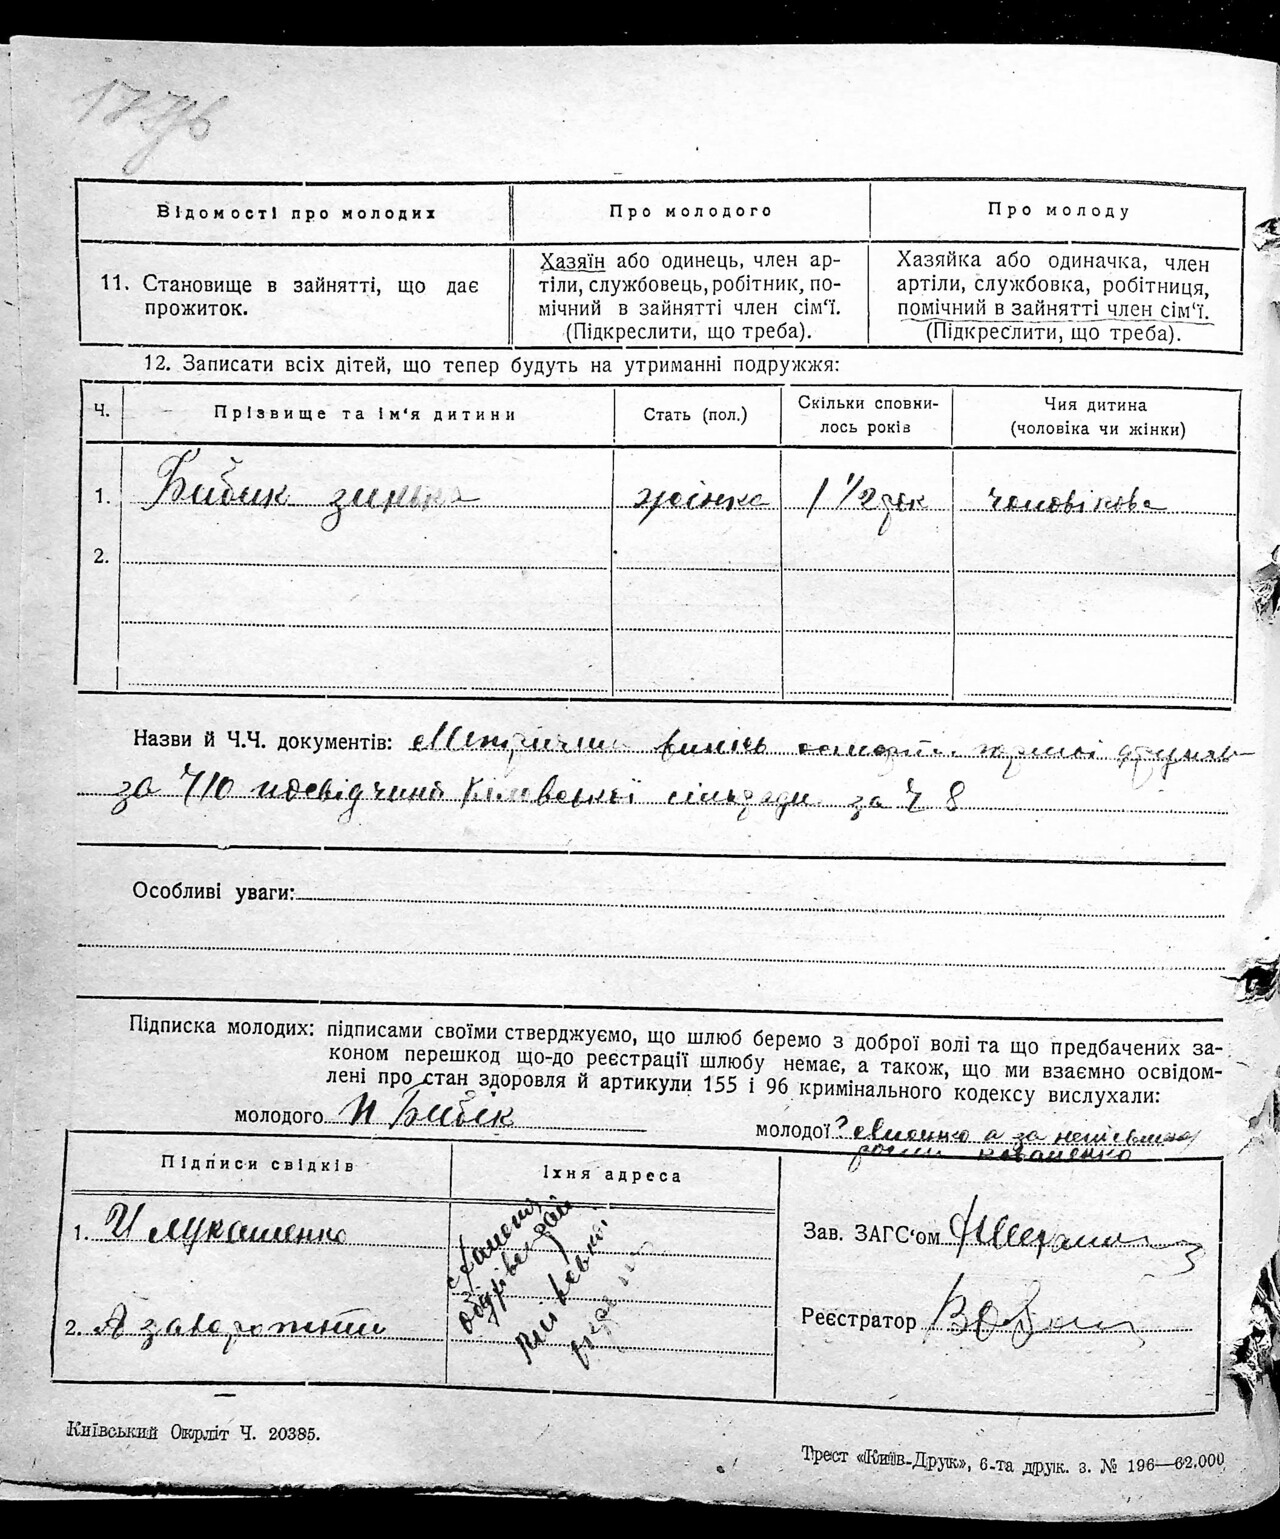 Відомості про молодих
Про молодого
Про молоду
11. Становище в зайнятті, що дає
прожиток.
Хазяїн або одинець, член ар-
тіли, службовець, робітник, по-
мічний в зайнятті член сім'ї.
(Підкреслити, що треба).
Хазяйка або одиначка, член
артіли, службовка, робітниця,
помічний в зайнятті член сім'ї.
(Підкреслити, що треба).
12. Записати всіх дітей, що тепер будуть на утриманні подружжя:
Ч.
Прізвище та ім'я дитини
Стать (пол.)
Скільки сповни-
лось років
Чия дитина
(чоловіка чи жінки)
1. Бибик зинька жінка 1 1/2 рок чоловікова
2.
Назви й Ч.Ч. документів: випись
за Ч 10 посвідчиний сільради за Ч 8
Особливі уваги:
Підписка молодих: підписами своїми стверджуємо, що шлюб беремо з доброї волі та що предбачених за-
коном перешкод що-до реєстрації шлюбу немає, а також, що ми взаємно освідом-
лені про стан здоровля й артикули 155 і 96 кримінального кодексу вислухали:
молодого И Бибік
молодої а за неписьмену
коваленко
Підписи свідків
Їхня адреса
1. И Лукашенко
2. А
Зав. ЗАГС'ом
Реєстратор
Київський Окрліт Ч. 20385.
Трест «Київ-Друк», 6-та друк. з. № 196—62.000